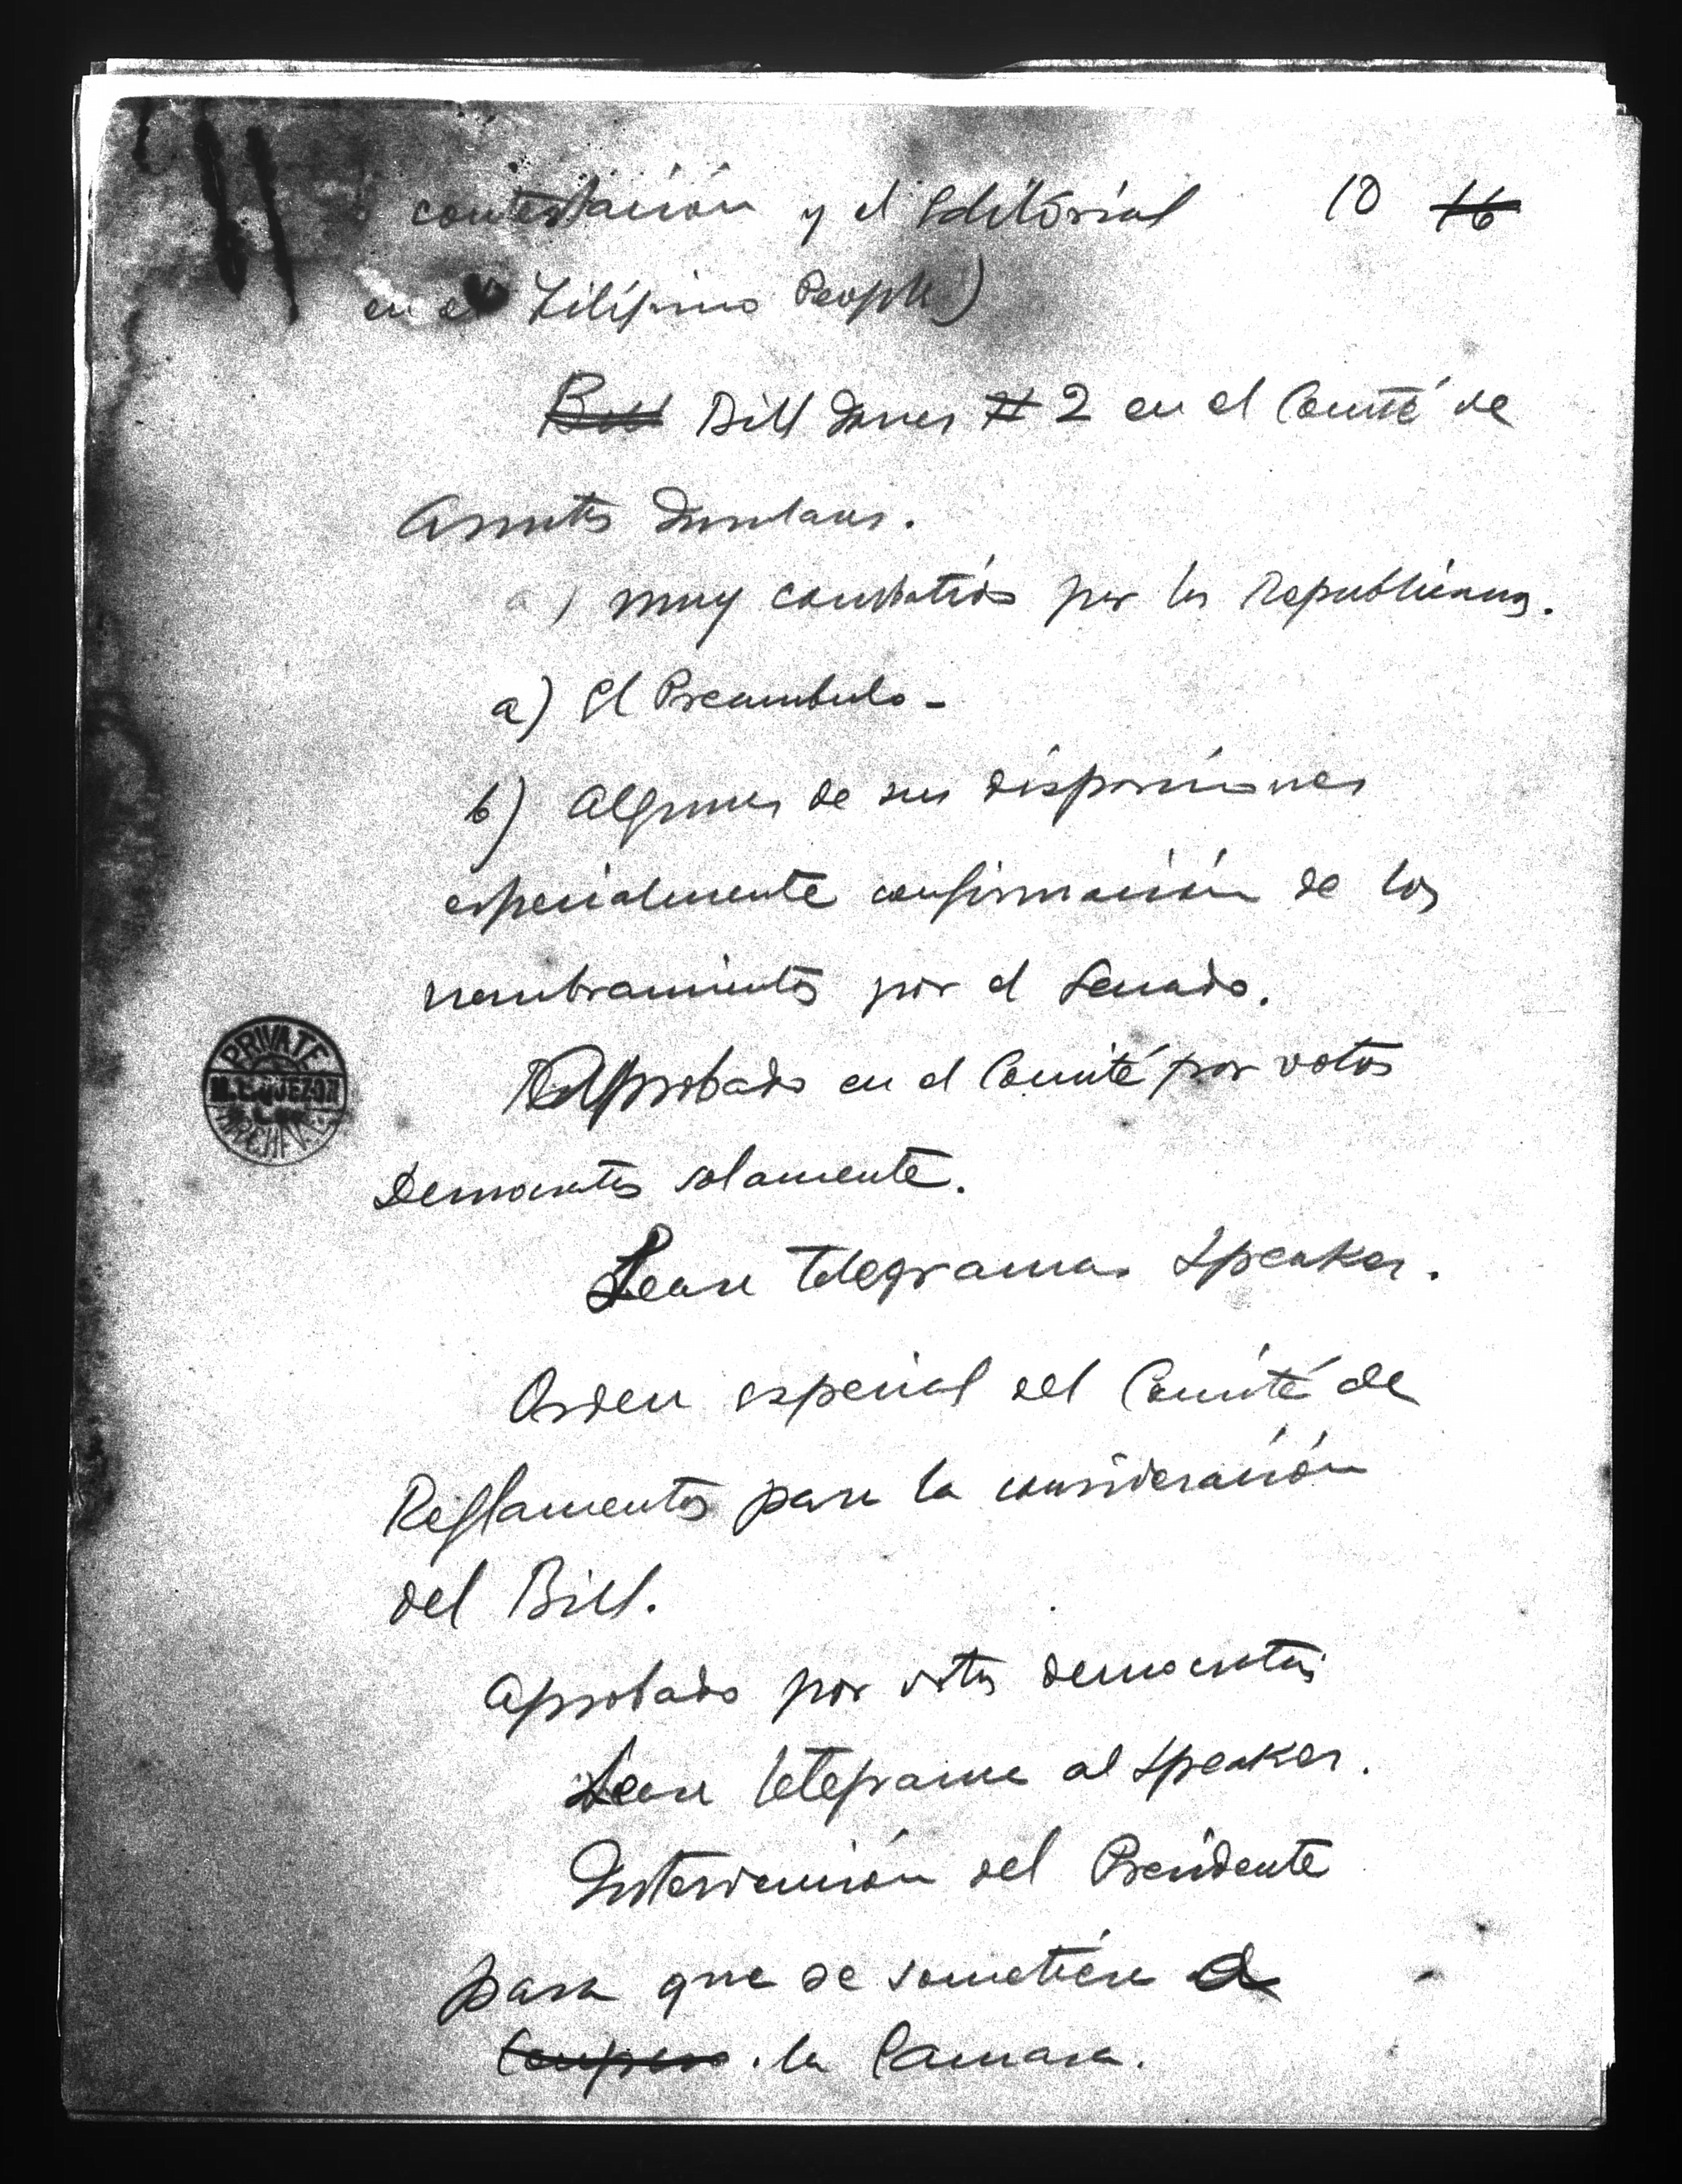 contestación y el Editorial 10 16
en el Filipino People)
Bill Bill Jones # 2 en el Comité de
Asuntos Insulares.
a) muy combatido por los Republicanos.
a) El Preambulo -
b) Algunas de sus disposiciones
especialmente confirmación de los
nombramientos por el Senado.
Aprobado en el Comité por votos
Democratas solamente.
Lease telegramas Speaker.
Orden especial del Comité de
Reglamentos para la consideración
del Bill.
Aprobado por votos democratas
Lease telegrama al Speaker.
Intervención del Presidente
para que se sometiere a
Congreso la Camara.
PRIVATE
M.L. QUEZON
ARCHIVES